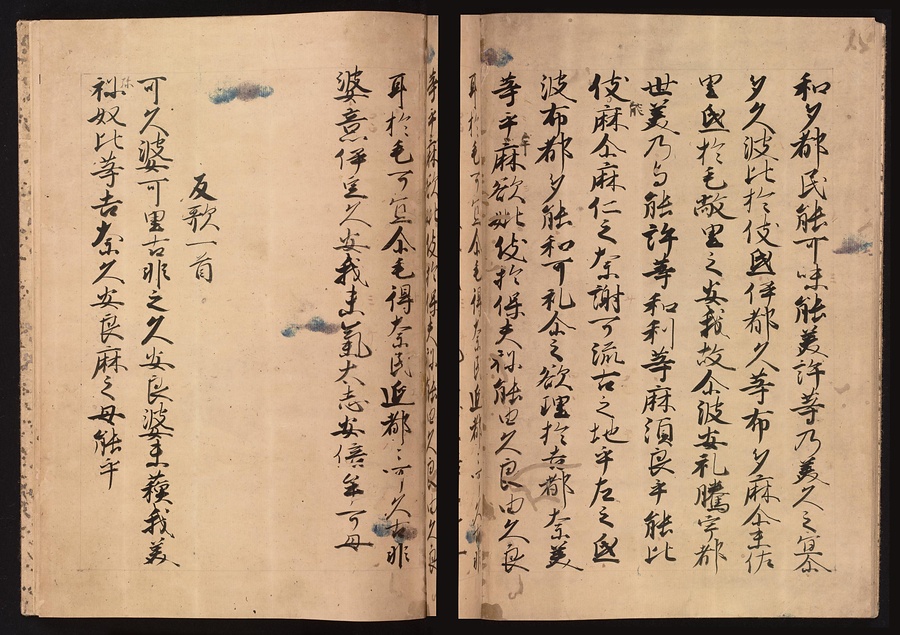 和多都民能可味能美許等乃美久之冝尓
多久波比於伎弖伊都久等布多麻尓末佐
里弖於毛敝里之安我故尓波安礼騰宇都
世美乃与能許等和利等麻須良乎能比
伎能麻尓麻仁之奈謝可流古之地乎左之弖
波布都多能和可礼尓之欲理於吉都奈美
等乎牟麻欲比伎於保夫祢能由久良由久良
耳於毛可冝尓毛得奈民延都々可久古非
婆意伊豆久安我末氣太志安倍牟可母
反歌一首
可久婆可里古非之久安良婆末蘓我美
祢奴比等吉奈久安良麻之母能乎